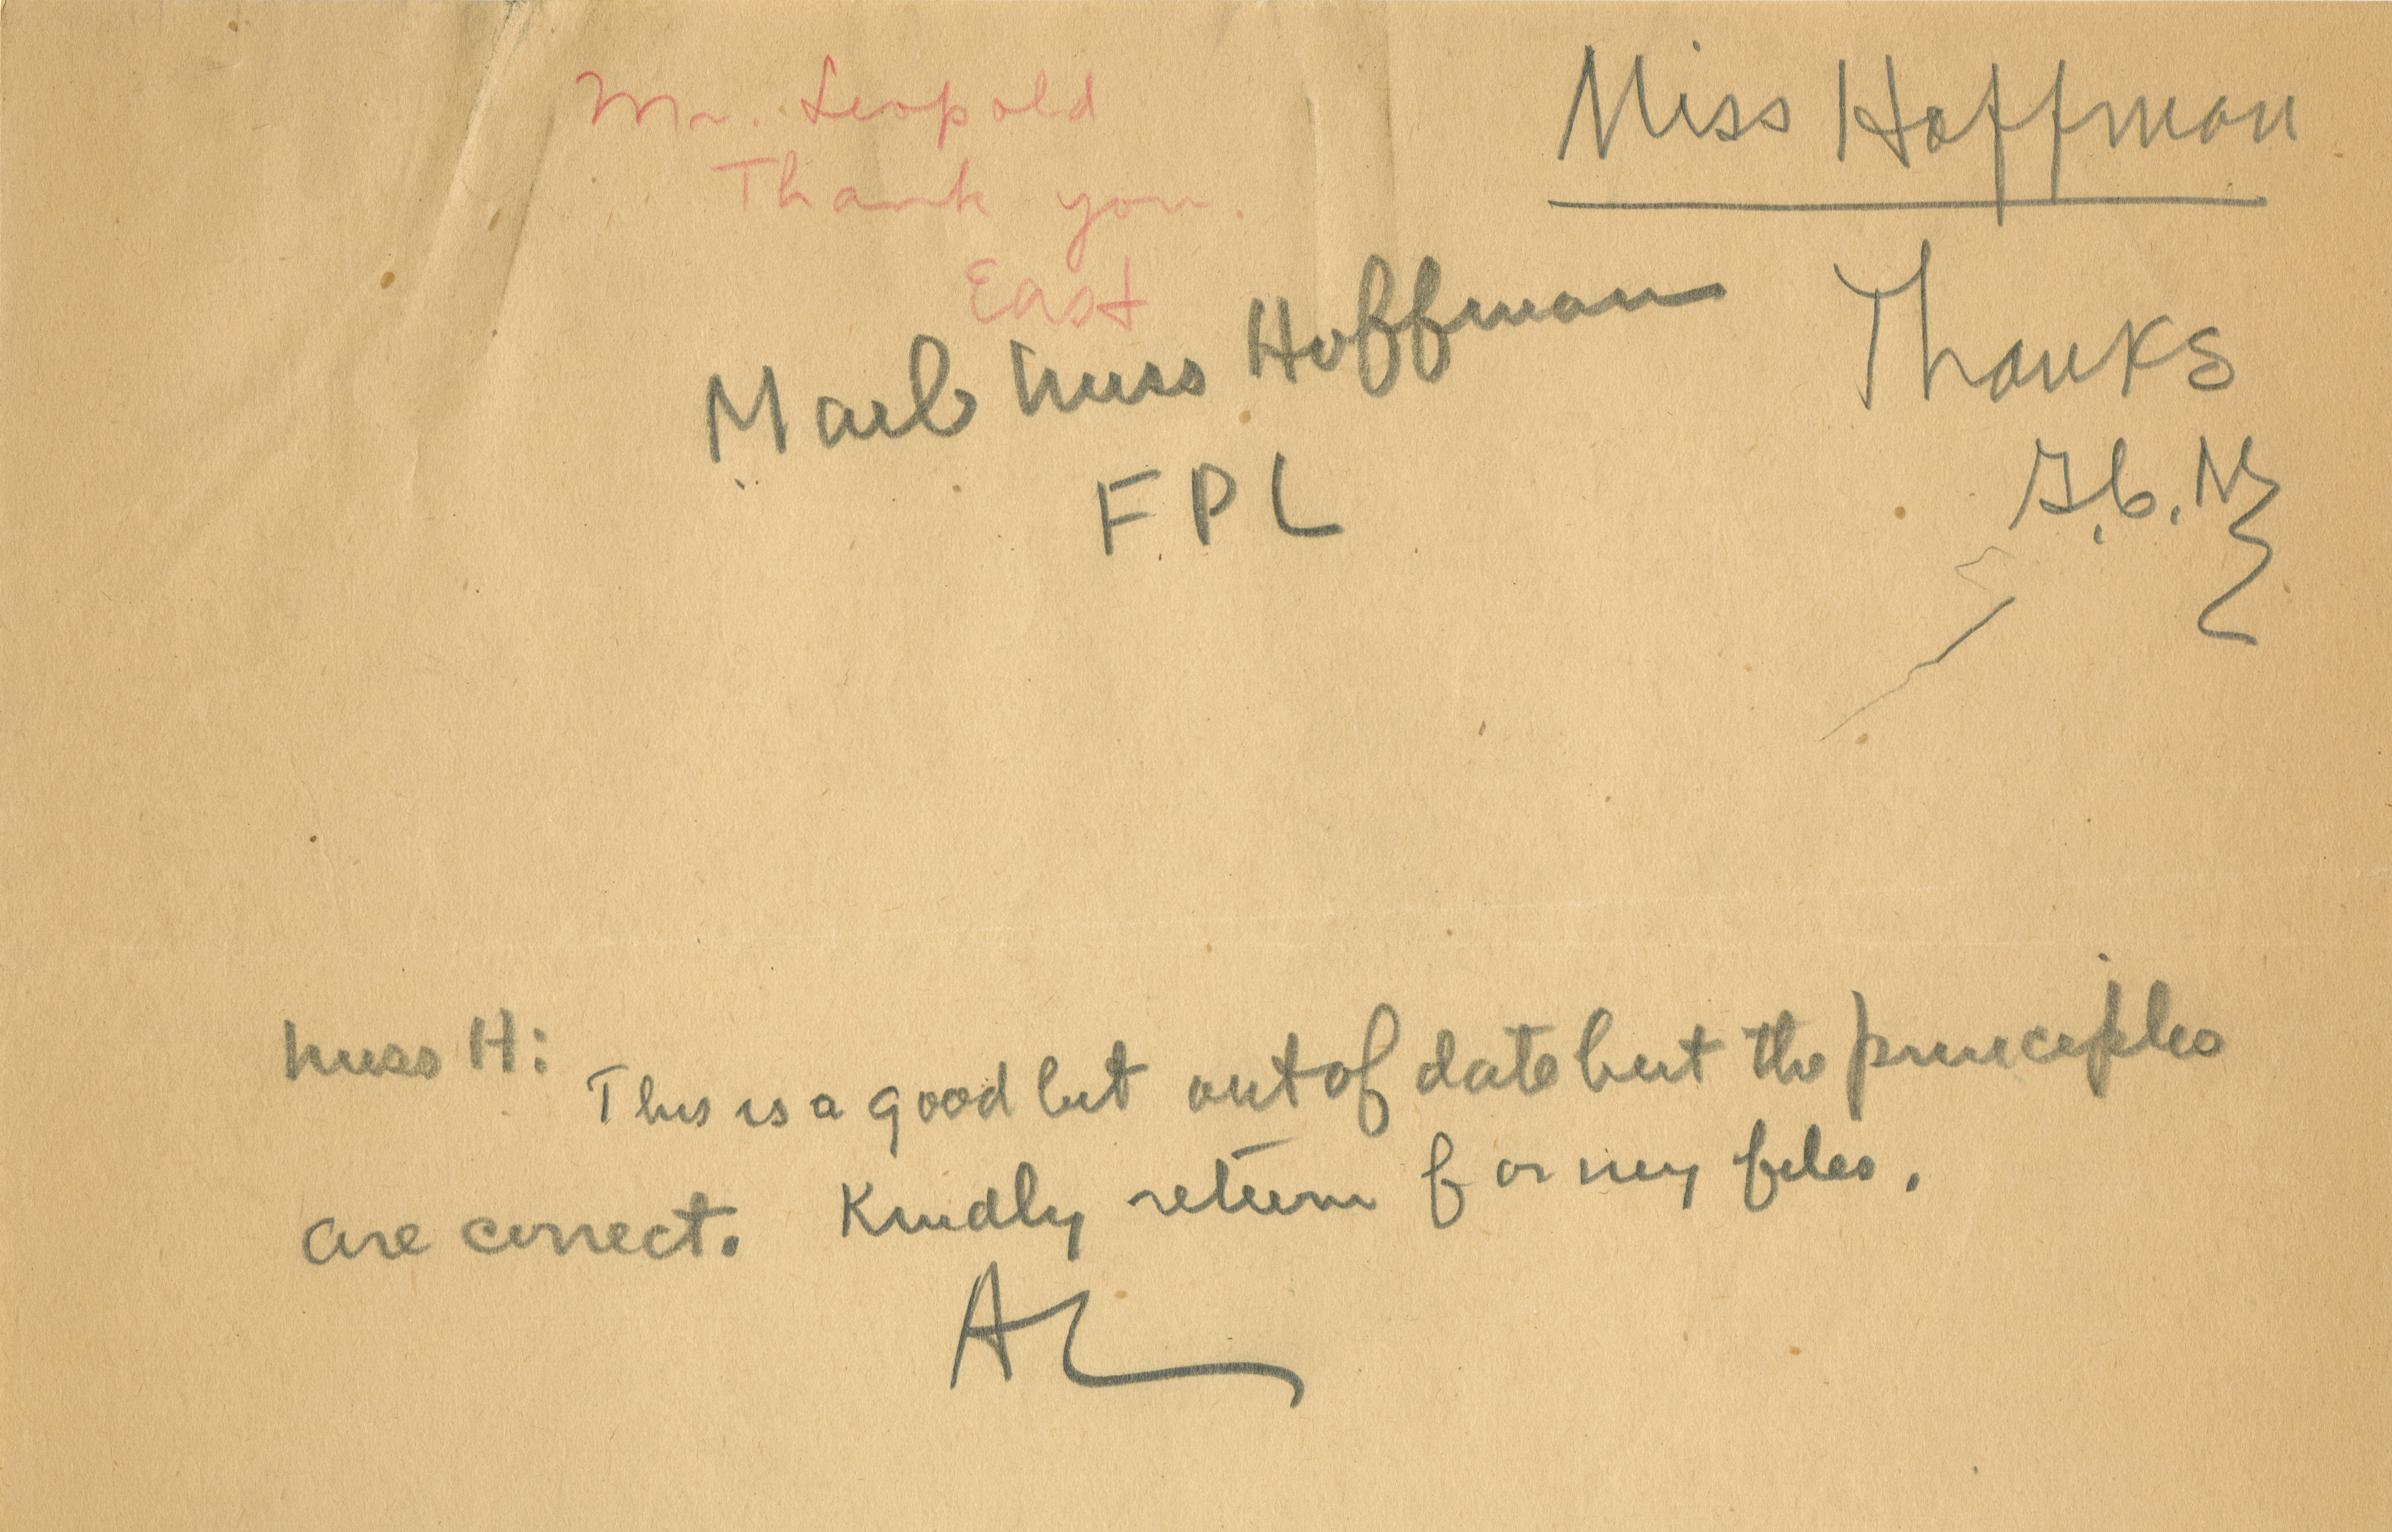 Mr. Leopold
Thank you.
East
Miss Hoffman
Thanks
Mail Miss Hoffman
F P L
Miss H:
This is a good bit out of date but the principles
are correct. Kindly return for my files.
AL